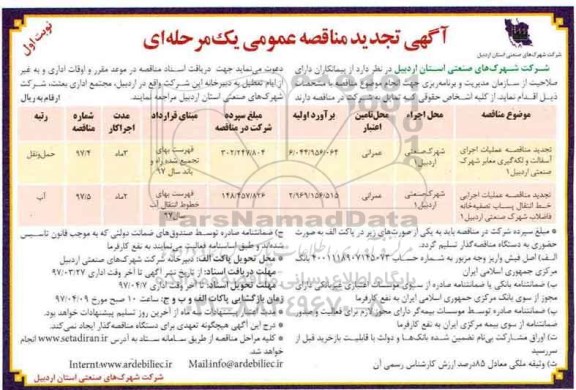 نوبت اول
آگهی تجدید مناقصه عمومی یک‌مرحله‌ای
شرکت شهرک‌های صنعتی استان اردبیل
شرکت شهرک‌های صنعتی استان اردبیل در نظر دارد از پیمانکاران دارای
صلاحیت از سازمان مدیریت و برنامه‌ریزی جهت انجام موضوع مناقصه با مشخصات
ذیل اقدام نماید. از کلیه اشخاص حقوقی که تمایل به شرکت در مناقصه دارند
دعوت می نماید جهت دریافت اسناد مناقصه در موعد مقرر و اوقات اداری و به غیر
از ایام تعطیل به دبیرخانه این شرکت واقع در اردبیل، مجتمع اداری بعثت، شرکت
شهرک‌های صنعتی استان اردبیل مراجعه نمایند. ارقام به ریال
موضوع مناقصه محل اجراء محل تامین اعتبار برآورد اولیه مبلغ سپرده شرکت در مناقصه مبنای قرارداد مدت اجراکار شماره مناقصه رتبه
تجدید مناقصه عملیات اجرای آسفالت و لکه‌گیری معابر شهرک صنعتی اردبیل۱ شهرک‌صنعتی اردبیل۱ عمرانی ۶/۰۴۴/۹۵۶/۰۶۴ ۳۰۲/۲۴۷/۸۰۴ فهرست بهای تجمیع شده راه و باند سال ۹۷ ۳ماه ۹۷/۴ حمل‌ونقل
تجدید مناقصه عملیات اجرایی خط انتقال پساب تصفیه‌خانه فاضلاب شهرک صنعتی اردبیل۱ شهرک‌صنعتی اردبیل۱ عمرانی ۲/۹۶۹/۱۵۶/۵۱۵ ۱۴۸/۴۵۷/۸۲۶ فهرست بهای خطوط انتقال آب سال۹۷ ۲ماه ۹۷/۵ آب
* مبلغ سپرده شرکت در مناقصه باید به یکی از صورت‌های زیر در پاکت الف به صورت
حضوری به دستگاه مناقصه‌گذار تسلیم گردد.
الف) اصل فیش واریز وجه مزبور به شماره حساب ۴۰۰۱۱۱۸۹۰۷۱۴۵۰۷۳ بانک
مرکزی جمهوری اسلامی ایران
ب) ضمانتنامه بانکی یا ضمانتنامه صادره از سوی موسسات اعتباری غیربانکی دارای
مجوز از سوی بانک مرکزی جمهوری اسلامی ایران به نفع کارفرما
پ) ضمانتنامه صادره توسط موسسات بیمه‌گر دارای مجوز لازم برای فعالیت و صدور
ضمانتنامه از سوی بیمه مرکزی ایران به نفع کارفرما
ت) اوراق مشارکت بی‌نام تضمین شده بانک‌ها و دولت با قابلیت بازخرید قبل از
سررسید
ث) وثیقه ملکی معادل ۸۵درصد ارزش کارشناس رسمی آن
ج) ضمانتنامه صادره توسط صندوق‌های ضمانت دولتی که به موجب قانون تاسیس
شده‌اند و طبق اساسنامه فعالیت می‌نمایند به نفع کارفرما
* محل تحویل پاکت الف: دبیرخانه شرکت شهرک‌های صنعتی اردبیل
مهلت دریافت اسناد: از تاریخ نشر آگهی تا آخر وقت اداری ۹۷/۰۳/۲۷
مهلت تحویل اسناد: تا آخر وقت اداری ۹۷/۰۴/۷
زمان بازگشایی پاکات الف و ب و ج: ساعت ۱۰ صبح مورخ ۹۷/۰۴/۰۹
ماه از آخرین روز تسلیم پیشنهادات خواهد بود.
* درج این آگهی هیچگونه تعهدی برای دستگاه مناقصه‌گذار ایجاد نمی‌کند.
* کلیه مراحل مناقصه از طریق سامانه ستاد به آدرس www.setadiran.ir انجام
خواهد شد.
Internt:www.ardebiliec.ir Mail:info@ardebiliec.ir
شرکت شهرک‌های صنعتی استان اردبیل
ParsNamadData